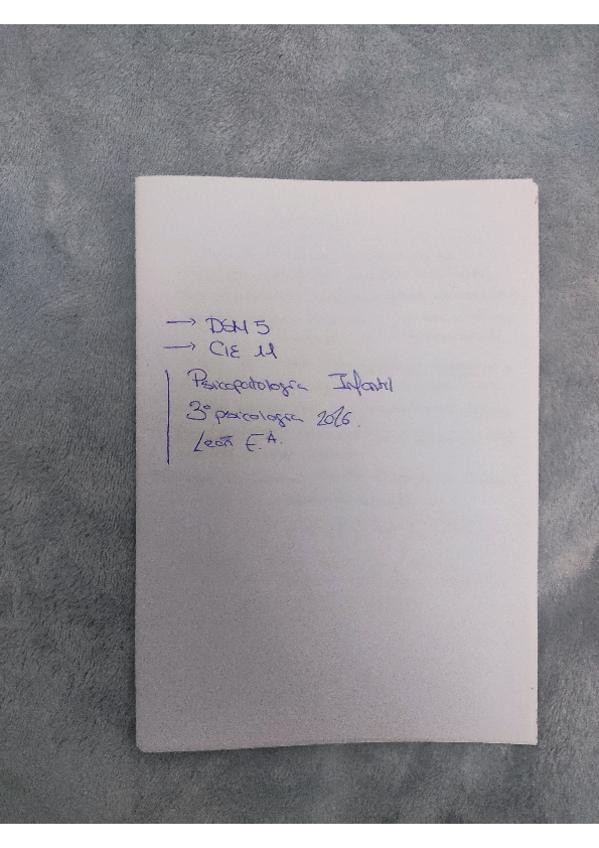 → DSM 5
→ CIE 11
Psicopatología Infantil
3º psicología 2026.
León E.A.